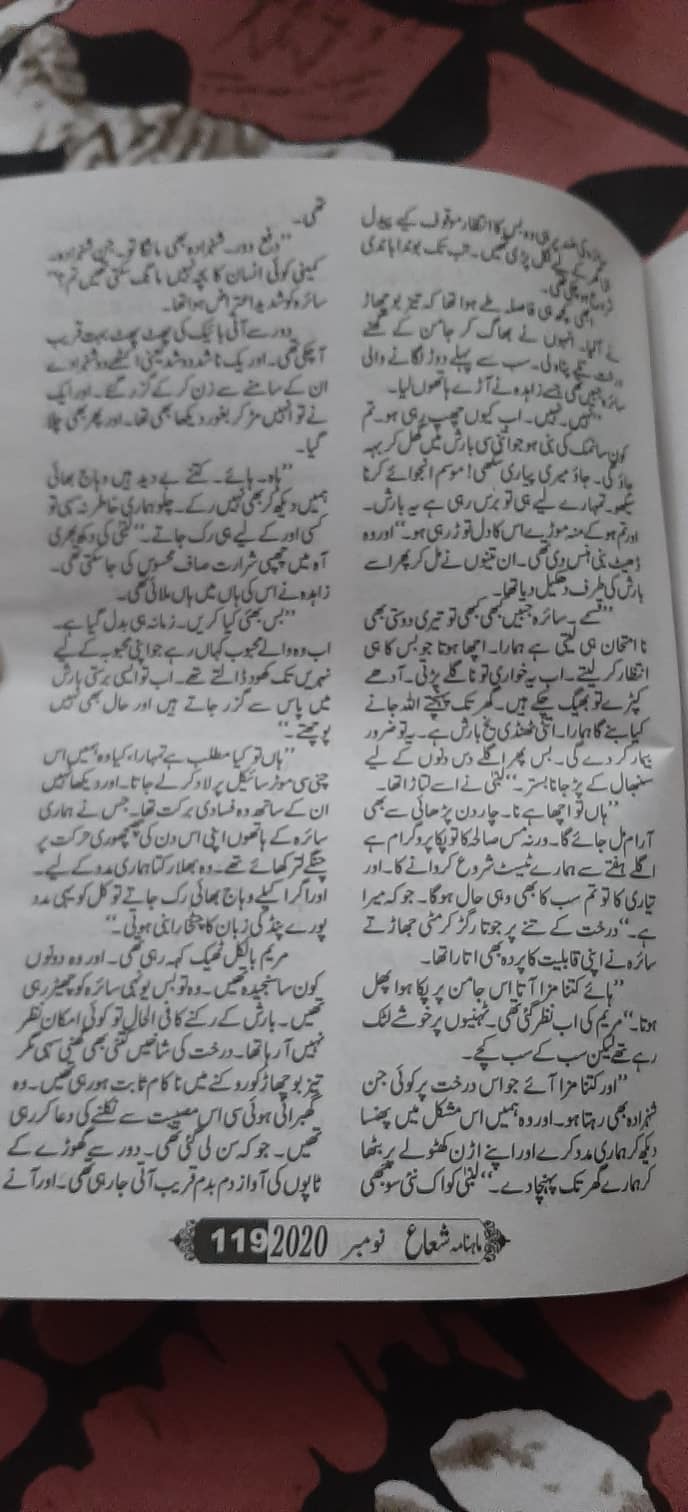 پر ہی وہ بس کا انتظار موقوف کیے پیدل
کے لیے نکل پڑی تھیں۔ تب تک بوندا باندی
ابھی کچھ ہی فاصلہ طے ہوا تھا کہ تیز بوچھاڑ
نے آلیا۔ انہوں نے بھاگ کر جامن کے گھنے
تلے پناہ لی۔ سب سے پہلے دوڑ لگانے والی
سائرہ جبیں تھی جسے زاہدہ نے آڑے ہاتھوں لیا۔
”نہیں۔ نہیں۔ اب کیوں چھپ رہی ہو۔ تم
کون سا نمک کی بنی ہو جو اتنی سی بارش میں گھل کر بہہ
جاؤ گی۔ جاؤ میری پیاری سکھی! موسم انجوائے کرنا
سیکھو۔ تمہارے لیے ہی تو برس رہی ہے یہ بارش۔
اور تم ہو کے منہ موڑے اس کا دل توڑ رہی ہو۔“ اور وہ
ڈھیٹ بنی ہنس دی تھی۔ ان تینوں نے مل کر پھر اسے
بارش کی طرف دھکیل دیا تھا۔
”قسمے۔ سائرہ جبیں کبھی کبھی تو تیری دوستی بھی
نا امتحان ہی لیتی ہے ہمارا۔ اچھا ہوتا جو بس کا ہی
انتظار کر لیتے۔ اب یہ خواری تو نا گلے پڑتی۔ آدھے
کپڑے تو بھیگ چکے ہیں۔ گھر تک پہنچتے اللہ جانے
کیا بنے گا ہمارا۔ اتنی ٹھنڈی یخ بارش ہے۔ یہ تو ضرور
بیمار کر دے گی۔ بس پھر اگلے دس دنوں کے لیے
سنبھال کے پڑ جانا بستر۔“ لبنیٰ نے اسے لتاڑا تھا۔
”ہاں تو اچھا ہے نا۔ چار دن پڑھائی سے بھی
آرام مل جائے گا۔ ورنہ مس صالحہ کا تو پکا پروگرام ہے
اگلے ہفتے سے ہمارے ٹیسٹ شروع کروانے کا۔ اور
تیاری کا تو تم سب کا بھی وہی حال ہوگا۔ جو کہ میرا
ہے۔“ درخت کے تنے پر جوتا رگڑ کر مٹی جھاڑتے
سائرہ نے اپنی قابلیت کا پردہ بھی اتارا تھا۔
”ہائے کتنا مزا آتا اس جامن پر پکا ہوا پھل
ہوتا۔“ مریم کی اب نظر گئی تھی۔ ٹہنیوں پر خوشے لٹک
رہے تھے لیکن سب کے سب کچے۔
”اور کتنا مزا آئے جو اس درخت پر کوئی جن
شہزادہ بھی رہتا ہو۔ اور وہ ہمیں اس مشکل میں پھنسا
دیکھ کر ہماری مدد کرے اور اپنے اڑن کھٹولے پر بٹھا
کر ہمارے گھر تک پہنچا دے۔“ لبنیٰ کو اک نئی سوجھی
تھی۔
”دفع دور۔ شہزادہ بھی مانگا تو۔ جن شہزادہ۔
کمینی کوئی انسان کا بچہ نہیں مانگ سکتی تھیں تم؟“
سائرہ کو شدید اعتراض ہوا تھا۔
دور سے آتی بائیک کی پھٹ پھٹ بہت قریب
آ چکی تھی۔ اور یک نا شد دو شد یعنی اکٹھے دو شہزادے
ان کے سامنے سے زن کر کے گزر گئے۔ اور ایک
نے تو انہیں مڑ کر بغور دیکھا بھی تھا۔ اور پھر بھی چلا
گیا۔
”ہاہ۔ ہائے۔ کتنے بے دید ہیں وہاج بھائی
ہمیں دیکھ کر بھی نہیں رکے۔ چلو ہماری خاطر نہ سہی تو
کسی اور کے لیے ہی رک جاتے۔“ لبنیٰ کی دکھ بھری
آہ میں چھپی شرارت صاف محسوس کی جا سکتی تھی۔
زاہدہ نے اس کی ہاں میں ہاں ملائی تھی۔
”بس بھئی کیا کریں۔ زمانہ ہی بدل گیا ہے۔
اب وہ والے محبوب کہاں رہے جو اپنی محبوب کے لیے
نہریں تک کھود ڈالتے تھے۔ اب تو ایسی برستی بارش
میں پاس سے گزر جاتے ہیں اور حال بھی نہیں
پوچھتے۔“
”ہاں تو کیا مطلب ہے تمہارا، کیا وہ ہمیں اس
چنی سی موٹر سائیکل پر لاد کر لے جاتا۔ اور دیکھا نہیں
ان کے ساتھ وہ فسادی برکت تھا۔ جس نے ہماری
سائرہ کے ہاتھوں اپنی اس دن کی چھچھوری حرکت پر
چنگے لتر کھائے تھے۔ وہ بھلا رکتا ہماری مدد کے لیے۔
اور اگر اکیلے وہاج بھائی رک جاتے تو کل کو یہی مدد
پورے پنڈ کی زبان کا چٹخارا بنی ہوتی۔“
مریم بالکل ٹھیک کہہ رہی تھی۔ اور وہ دونوں
کون سا سنجیدہ تھیں۔ وہ تو بس یونہی سائرہ کو چھیڑ رہی
تھیں۔ بارش کے رکنے کا فی الحال تو کوئی امکان نظر
نہیں آ رہا تھا۔ درخت کی شاخیں کتنی بھی گھنی سہی مگر
تیز بوچھاڑ کو روکنے میں ناکام ثابت ہو رہی تھیں۔ وہ
گھبرائی ہوئی سی اس مصیبت سے نکلنے کی دعا کر رہی
تھیں۔ جو کہ سن لی گئی تھی۔ دور سے گھوڑے کے
ٹاپوں کی آواز دم بدم قریب آتی جا رہی تھی۔ اور آنے
ماہنامہ شعاع نومبر 2020 119